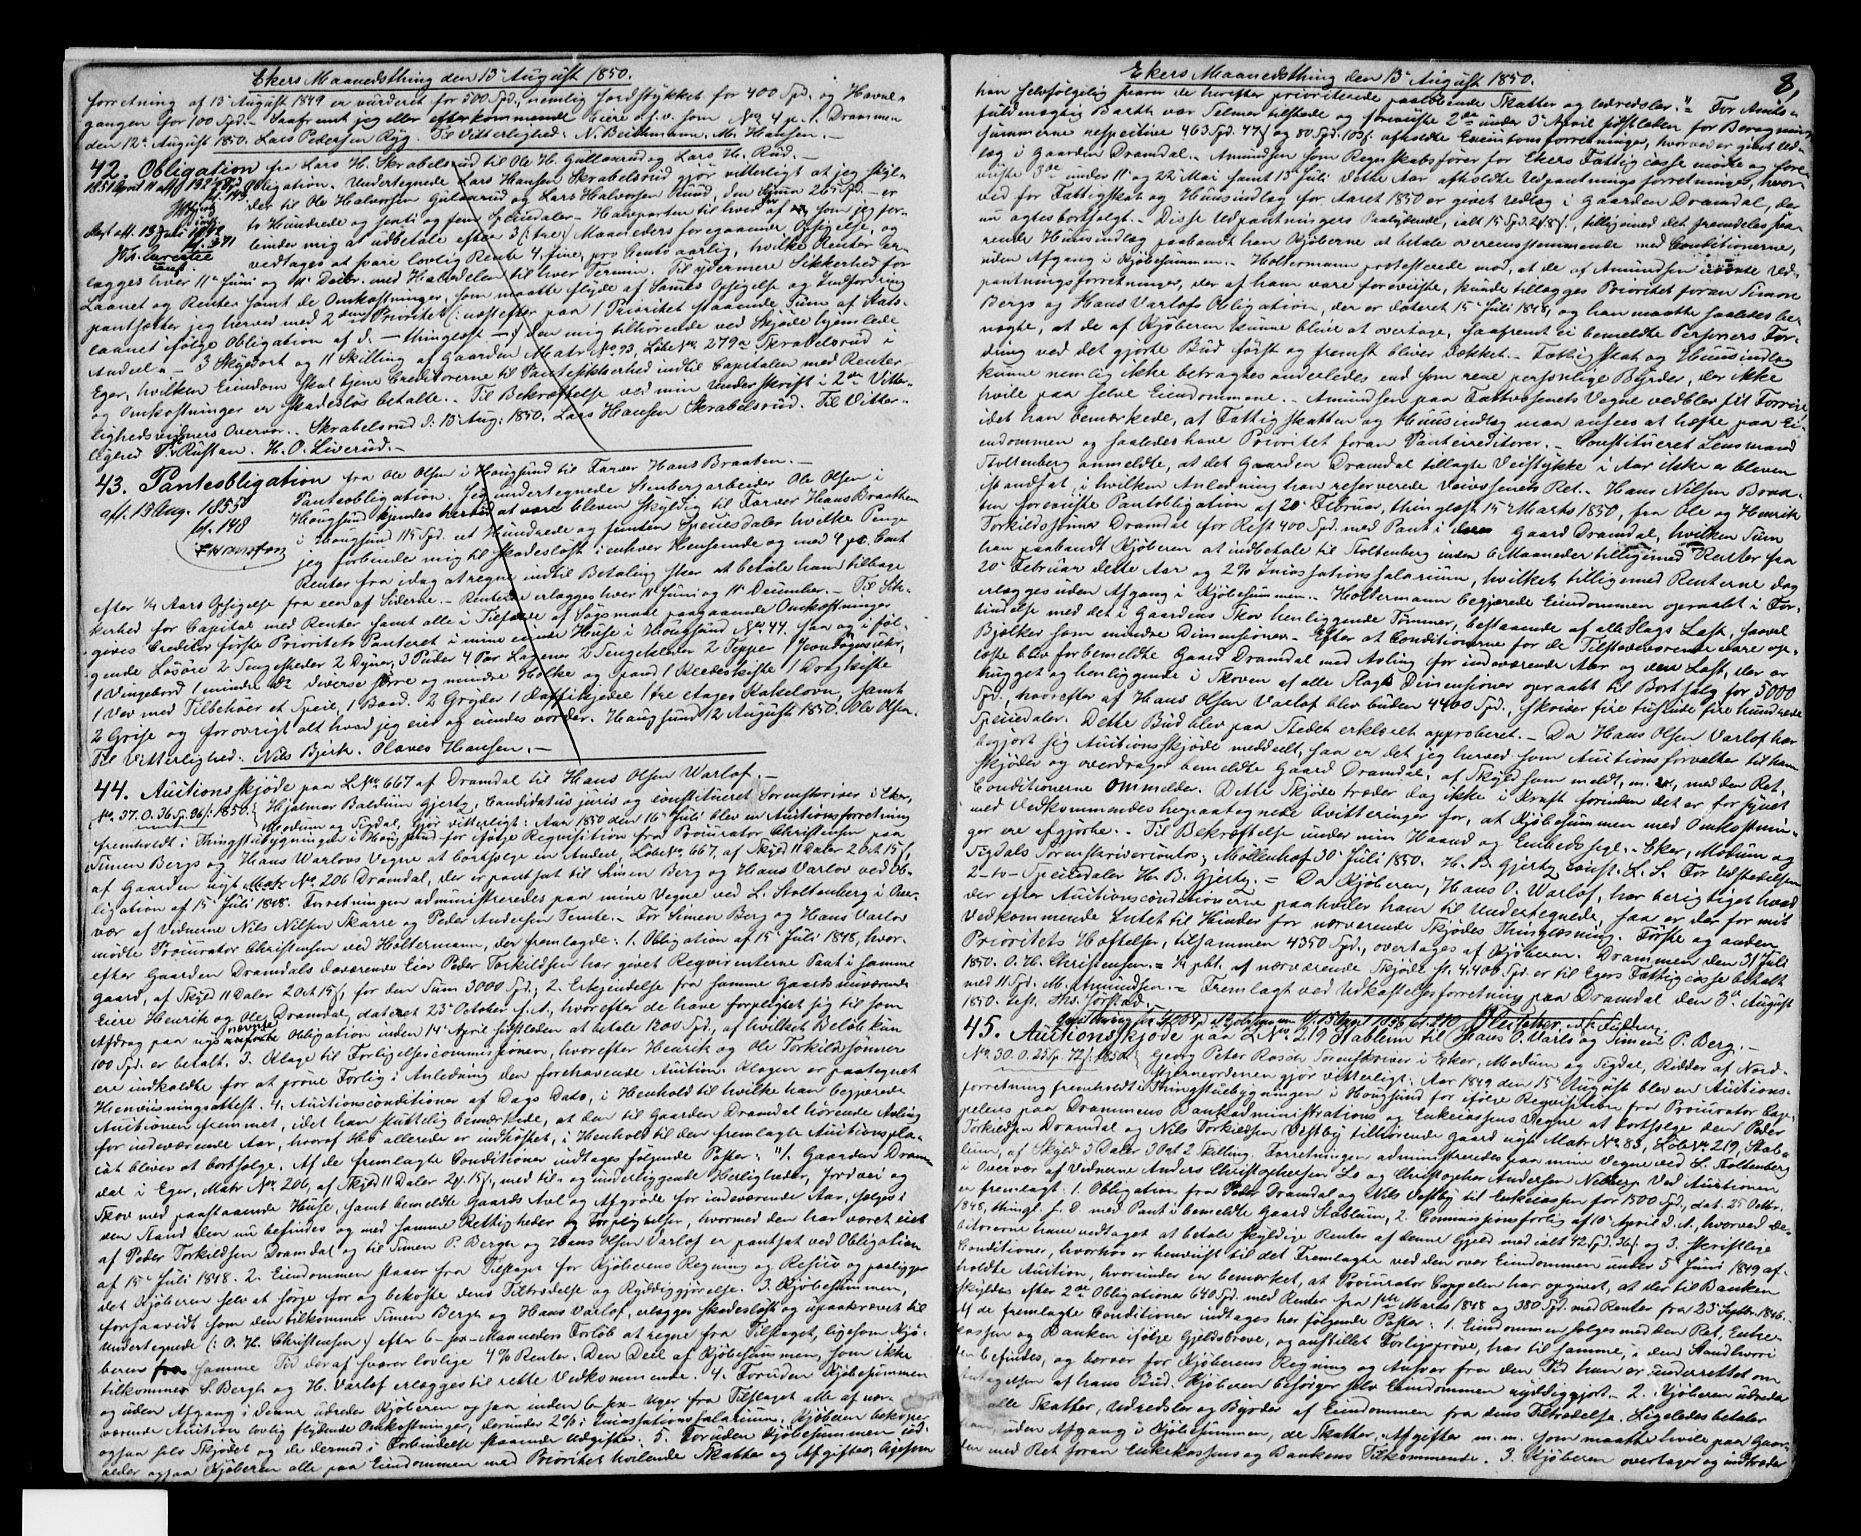 Ekers Maanedsthing den 13de August 1850.
forretning af 13de August 1849 er vurderet for 500 Spd., nemlig Jordstykket for 400 Spd. og Havnel-
gangen for 100 Spd. Saafremt jeg eller efterkommende Eiere o.s.v. som No 4 p. 1. Drammen
den 12te August 1850. Lars Pedersen Ryg. Til Vitterlighed: N. Beichmann. M. Hansen. —
42. Obligation fra Lars H. Skrabelsrud til Ole H. Gullaxrud og Lars H. Rud. —
Obligation. Undertegnede Lars Hansen Skrabelsrud gjør vitterligt at jeg skyl-
der til Ole Halvorsen Gulaxrud og Lars Halvorsen Ruud, den Summa 265 Spd — er
to Hundrede og sexti og fem Speciedaler — Halvparten til hver af som jeg for-
binder mig at udbetale efter 3 (: tre:) Maaneders foregaaende Opsigelse, og
vedtages at svare lovlig Rente 4, fire, pro Cento aarlig, hvilke Renter er-
lægges hver 11te Juni og 11te Decbr. med Halvdelen til hver Termin. Til ydermere Sikkerhed for
Laanet og Renter samt de Omkostninger, som maatte flyde af Lands Opsigelse og Indfordring
pantsætter jeg herved med 2den Prioritet (: næstefter paa 1 Prioritet staaende Sum af Stats-
laanet ifølge Obligation af d. — thinglæst — :) den mig tilhørende ved Skjøde hjemlede
Andeel — 3 Skyldort og 11 Skilling af Gaarden Matr No 93, Løbe No 279a Skrabelsrud i
Eger, hvilken Eiendom skal tjene Creditorerne til Pantesikkerhed indtil Capitalen med Renter
og Omkostninger er skadesløs betalte. Til Bekræftelse ved min Underskrift i 2de Vitter-
lighedsvidners Overvær. Skrabelsrud d. 13 Aug: 1850. Lars Hansen Skrabelsrud. Til Vitter-
lighed P. Rustan. H. O. Liverud. —
43. Panteobligation fra Ole Olsen i Hougsund til Farver Hans Braaten. —
aflt. 15 Aug. 1855
fol. 148
Panteobligation. Jeg undertegnede Stenbergarbeider Ole Olsen i
Hougsund kjendes herved at være bleven skyldig til Farver Hans Braathen
i Hougsund 115 Spd. et Hundrede og femten Speciesdaler hvilke Penge
jeg forbinder mig til skadesløst i enhver Henseende og med 4 pr. Cent
Renter fra idag at regne indtil Betaling skeer at betale ham tilbage
efter 1/4 Aars Opsigelse fra een af Siderne. Renterne erlægges hver 11te Juni og 11te December. — Til Sik-
kerhed for Capital med Renter samt alle i Tilfælde af Søgsmaal paagaaende Omkostninger
gives Creditor første Prioritets Panteret i mine eiende Huse i Hougsund No 44. saa og i føl-
gende Løsøre 2 Sengesteder 2 Dyner, 3 Puder 4 Par Lagener 2 Sengetæpper 2 Tepper 1 Jern
1 Vingebord 1 mindre do diverse større og mindre Holke og Spand 1 Klædeskiste 1 Dragkiste
1 Væv med Tilbehør et Speil, 1 Baad. 2 Gryder 1 Kaffekjedel 1 tre Etages Kakelovn, samt
2 Grise og forøvrigt alt hvad jeg eier og eiendes vorder. Haugsund 12 August 1850. Ole Olsen.
Til Vitterlighed: Nils Bjerk. Olaves Hansen. —
44. Auctionsskjøde paa L No 667 af Dramdal til Hans Olsen Varlof. —
No. 37. O. 36 Sp. 96 s. 1850. Hjalmar Baldvin Gjertz, Candidatus juris og constitueret Sorenskriver i Eker,
Modum og Sigdal, Gjør vitterligt: Aar 1850 den 16de Juli blev en Auctionsforretning
fremholdt i Thingstuebygningen i Hougsund for ifølge Requisition fra Procurator Christensen paa
Simen Bergs og Hans Warlovs Vegne at bortsælge en Andeel, Løbe No. 667, af Skyld 11 Daler 2 Ort 15 s,
af Gaarden nyt Matr No. 206 Dramdal, der er pantsat til Simen Berg og Hans Varlov ved Ob-
ligation af 15de Juli 1848. Forretningen administreredes paa mine Vegne ved L. Stoltenberg i Over-
vær af Vidnerne Nils Nilsen Skarre og Peder Andersen Temte. — For Simen Berg og Hans Varlov
mødte Procurator Christensen ved Holtermann, der fremlagde: 1. Obligation af 15de Juli 1848, hvor-
efter Gaarden Dramdals daværende Eier Peder Torkildsen har givet Reqvirenterne Pant i samme
Gaard, af Skyld 11 Daler 2 Ort 15 s, for den Sum 3000 Spd.; 2. Erkjendelse fra samme Gaards nuværende
Eiere Henrik og Ole Dramdal, dateret 23de October f. A., hvorefter de have forpligtet sig til som
Afdrag paa nysnævnte Obligation inden 14de April sidstleden at betale 1200 Spd., af hvilket Beløb kun
100 Spd. er betalt. 3. Klage til Forligelsescommissionen, hvorefter Henrik og Ole Torkildssønner
ere indkaldte for at prøve Forlig i Anledning den forehavende Auction. Klagen er paategnet
Henviisningsattest. 4. Auctionsconditioner af Dags Dato, i Henhold til hvilke han begjærede
Auctionen fremmet, idet han sluttelig bemærkede, at den til Gaarden Dramdal hørende Avling
for indeværende Aar, hvoraf Høe allerede er indhøstet, i Henhold til den fremlagte Auctionspla-
cat bliver at bortsælge. Af de fremlagte Conditioner indtages følgende Poster: "1. Gaarden Dram-
dal i Eger, Matr No. 206, af Skyld 11 Daler 2 Ort 15 s, med til- og underliggende Herligheder, Jordvei og
Skov med paastaaende Huse, samt bemeldte Gaards Avl og Afgrøde for indeværende Aar, sælges i
den Stand den nu befindes og med samme Rettigheder og Forpligtelser, hvormed den har været eiet
af Peder Torkildsen Dramdal og til Simen P. Bergh og Hans Olsen Varlof er pantsat ved Obligation
af 15de Juli 1848. 2. Eiendommen staaer fra Tilslaget for Kjøberens Regning og Resico og paaligger
det Kjøberen selv at sørge for og bekoste dens Tiltrædelse og Ryddiggjørelse. 3. Kjøbesummen,
forsaavidt som den tilkommer Simen Bergh og Hans Varlof, erlægges skadesløst og upaakrævet til
Undertegnede (: O. H. Christensen:) efter 6-sex-Maaneders Forløb at regne fra Tilslaget, ligesom Kjø-
beren fra samme Tid deraf svarer lovlige 4% Renter. Den Deel af Kjøbesummen, som ikke
tilkommer S. Bergh og H. Varlof erlægges til rette Vedkommende. 4. Foruden Kjøbesummen
og uden Afgang i denne udreder Kjøberen og saa inden 6-sex-Uger fra Tilslaget alle af nær-
værende Auction lovlig flydende Omkostninger, derunder 2% i Incassationssalarium. Kjøberen bekoster
ogsaa selv Skjødet og de dermed i Forbindelse staaende Udgifter. 5. Foruden Kjøbesummen ud-
reder ogsaa Kjøberen alle paa Eiendommen med Prioritet hvilende Skatter og Afgifter, ligesom
Ekers Maanedsthing den 13de August 1850.
8,
han selvfølgelig svarer de herefter prioriterede paaløbende Skatter og Udredsler." For Amts-
fuldmægtig Barth var Selmer tilstede og foreviste 2de under 3de April sidstleden for Beregnings-
summerne respective 463 Spd. 47 s og 80 Spd. 103 s. afholdte Executionsforretninger, hvorved er gjort Ud-
læg i Gaarden Dramdal. — Amundsen som Regnskabsfører for Ekers Fattigcasse mødte og fore-
viste 3de under 11te og 22 Mai samt 13de Juli dette Aar afholdte Udpantningsforretninger, hvor-
ved for Fattigskat og Huusindlæg for Aaret 1850 er gjort Udlæg i Gaarden Dramdal, der
nu agtes bortsolgt. — Disse Udpantningers Paalydende, ialt 15 Spd. 2 Ort 8 s., tilligemed det fremdeles paa-
rende Huusindlæg paabandt han Kjøberen at betale overensstemmende med Conditionerne,
uden Afgang i Kjøbesummen. — Holtermann protesterede mod, at de af Amundsen nævnte Ud-
pantningsforretninger, der af ham vare foreviste, kunde tillægges Prioritet foran Simen
Bergs og Hans Varlofs Obligation, der er dateret 15de Juli 1848, og han maatte saaledes be-
nægte, at de af Kjøberen kunne blive at overtage, saafremt ei bemeldte Personers For-
dring ved det gjorte Bud først og fremst bliver Dækket. — Fattigskat og Huusindlæg
kunne nemlig ikke betragtes anderledes end som rene personlige Byrder, der ikke
hvile paa selve Eiendommene. — Amundsen paa Fattigvæsenets Vegne vedblev sit Forrige,
idet han bemærkede, at Fattigskatten og Huusindlæg maa ansees at hæfte paa Ei-
endommen og saaledes have Prioritet foran Pantecreditorer. — Constitueret Lensmand
Stoltenberg anmeldte, at det Gaarden Dramdal tillagte Veistykke i Aar ikke er bleven
istandsat, i hvilken Anledning han reserverede Veivæsenets Ret. — Hans Nilsen Braa-
ten foreviste Pantobligation af 20de Februar, thinglæst 15de Marts 1850, fra Ole og Henrik
Torkildssønner Dramdal for Rest 400 Spd. med Pant i Gaard Dramdal, hvilken Sum
han paabandt Kjøberen at indbetale til Stoltenberg inden 6 Maaneder tilligemed Renter fra
20de Februar dette Aar og 2% Incassationssalarium, hvilket tilligemed Renterne dog
erlægges uden Afgang i Kjøbesummen. — Holtermann begjærede Eiendommen opraabt i For-
bindelse med det i Gaardens Skov henliggende Tømmer, bestaaende af alle Slags Last, saavel
Bjelker som mindre Dimensioner. — Efter at Conditionerne for de Tilstedeværende vare op-
læste blev forbemeldte Gaard Dramdal med Avling for indeværende Aar og den Last, der er
hugget og henliggende i Skoven af alle Slags Dimensioner opraabt til Bortsalg for 5000
Spd., hvorefter af Hans Olsen Varlof blev buden 4400 Spd., skriver fire tusinde fire hundrede
Speciedaler. Dette Bud blev paa Stedet erklæret approberet. — Da Hans Olsen Varlof har
begjært sig Auctionsskjøde meddeelt, saa er det jeg herved som Auctionsforvalter til ham
skjøder og overdrager bemeldte Gaard Dramdal, af Skyld som meldt, m. m., med den Ret,
Conditionerne ommelder. Dette Skjøde træder dog ikke i Kraft forinden det er forsynet
med Vedkommendes herpaategnede Qvitteringer for, at Kjøbesummen med Omkostnin-
ger ere afgjorte. — Til Bekræftelse under min Haand og Embedssegl. — Eker, Modum og
Sigdals Sorenskrivercontor, Møllenhof 30de Juli 1850. H. B. Gjertz const. L. S. For Udstedelsen
2-to-Speciedaler H. B. Gjertz. = Da Kjøberen, Hans O. Varlof, har berigtiget hvad
der efter Auctionsconditionerne paahviler ham til Undertegnede, saa er der for mit
Vedkommende Intet til Hinder for nærværende Skjødes Thinglæsning. Første og anden
Prioritets Hæftelser, tilsammen 4350 Spd., overtages af Kjøberen. Drammen den 31te Juli
1850. O. H. Christensen. = 1/4 pCt. af nærværende Skjøde st. 4.400 Spd. er til Egers Fattigcasse betalt
med 11 Spd. M. Amundsen. = Fremlagt ved Udkastelsesforretning paa Dramdal den 3de August
1850. Test. Ths. Jørstad.
45. Auctionsskjøde paa L No 219 Stablum til Hans O. Varlo og Simen P. Berg. —
No. 30. O. 25 Sp. 72 s. 1850. Georg Peter Rosch Sorenskriver i Eker, Modum og Sigdal, Ridder af Nord-
stjerneordenen gjør vitterligt: Aar 1849 den 15de August blev en Auctions-
forretning fremholdt i Thingstuebygningen i Hougsund for ifølge Requisition fra Procurator Cap-
pelens paa Drammens Bankadministrations og Enkecassens Vegne at bortsælge den Peder
Torkildsen Dramdal og Nils Torkildsen Vestby tilhørende Gaard nyt Matr No. 83, Løbe No. 219, Stab-
lum, af Skyld 3 Daler 3 Ort 2 Skilling. Forretningen administreredes paa mine Vegne ved L. Stoltenberg
i Overvær af Vidnerne Anders Christophersen Lo og Christopher Andersen Nedberg. Ved Auctionen
er fremlagt: 1. Obligation fra Peder Dramdal og Nils Vestby til Enkecassen for 1500 Spd., dat. 25 Octbr.
1848, thingl. s. D. med Pant i bemeldte Gaard Stablum, 2. Commissionsforlig af 10de April d. A., hvorved De-
bitorerne have indtaget at betale skyldige Renter af denne Gjeld med ialt 42 Spd. 36 s. og 3. skriftlige
Conditioner, hvorhos er henviist til det Fremlagte ved den over Eiendommen under 5te Juni 1849 af-
holdte Auction, hvorunder er bemærket, at Procurator Cappelen har opgivet, at der til Banken
skyldes efter 2de Obligationer 640 Spd. med Renter fra 1ste Marts 1848 og 380 Spd. med Renter fra 23 Septbr. 1846.
Af de fremlagte Conditioner indtages her følgende Poster: 1. Eiendommen sælges med den Ret, Enke-
kassen og Banken ifølge Gjeldsbreve, og anstillet Forligsprøve, har til samme, i den Stand hvori
den befindes, og beroer for Kjøberens Regning og Ansvar fra den Tid han er underrettet om
Antagelsen af hans Bud. Kjøberen besørger selv Eiendommen ryddiggjort. — 2. Kjøberen udreder
alle Skatter, Udredsler og Byrder af Eiendommen fra dens Tiltrædelse. Ligeledes betaler
han, uden Afgang i Kjøbesummen, de Skatter, Afgifter m. m. som maatte hvile paa Gaar-
den med Ret foran Enkekassens og Bankens Tilkommende. 3. Kjøberen overtager og indtræder